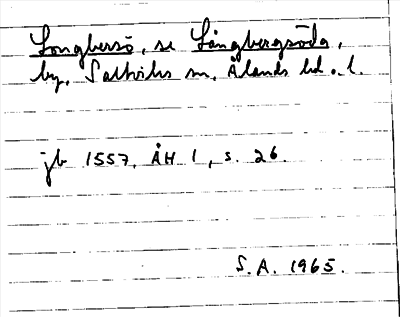 Longbersö, se Långbergsöda,
by, Saltviks sn, Ålands hd o. l.
jb 1557, ÅH 1, s. 26.
S. A. 1965.